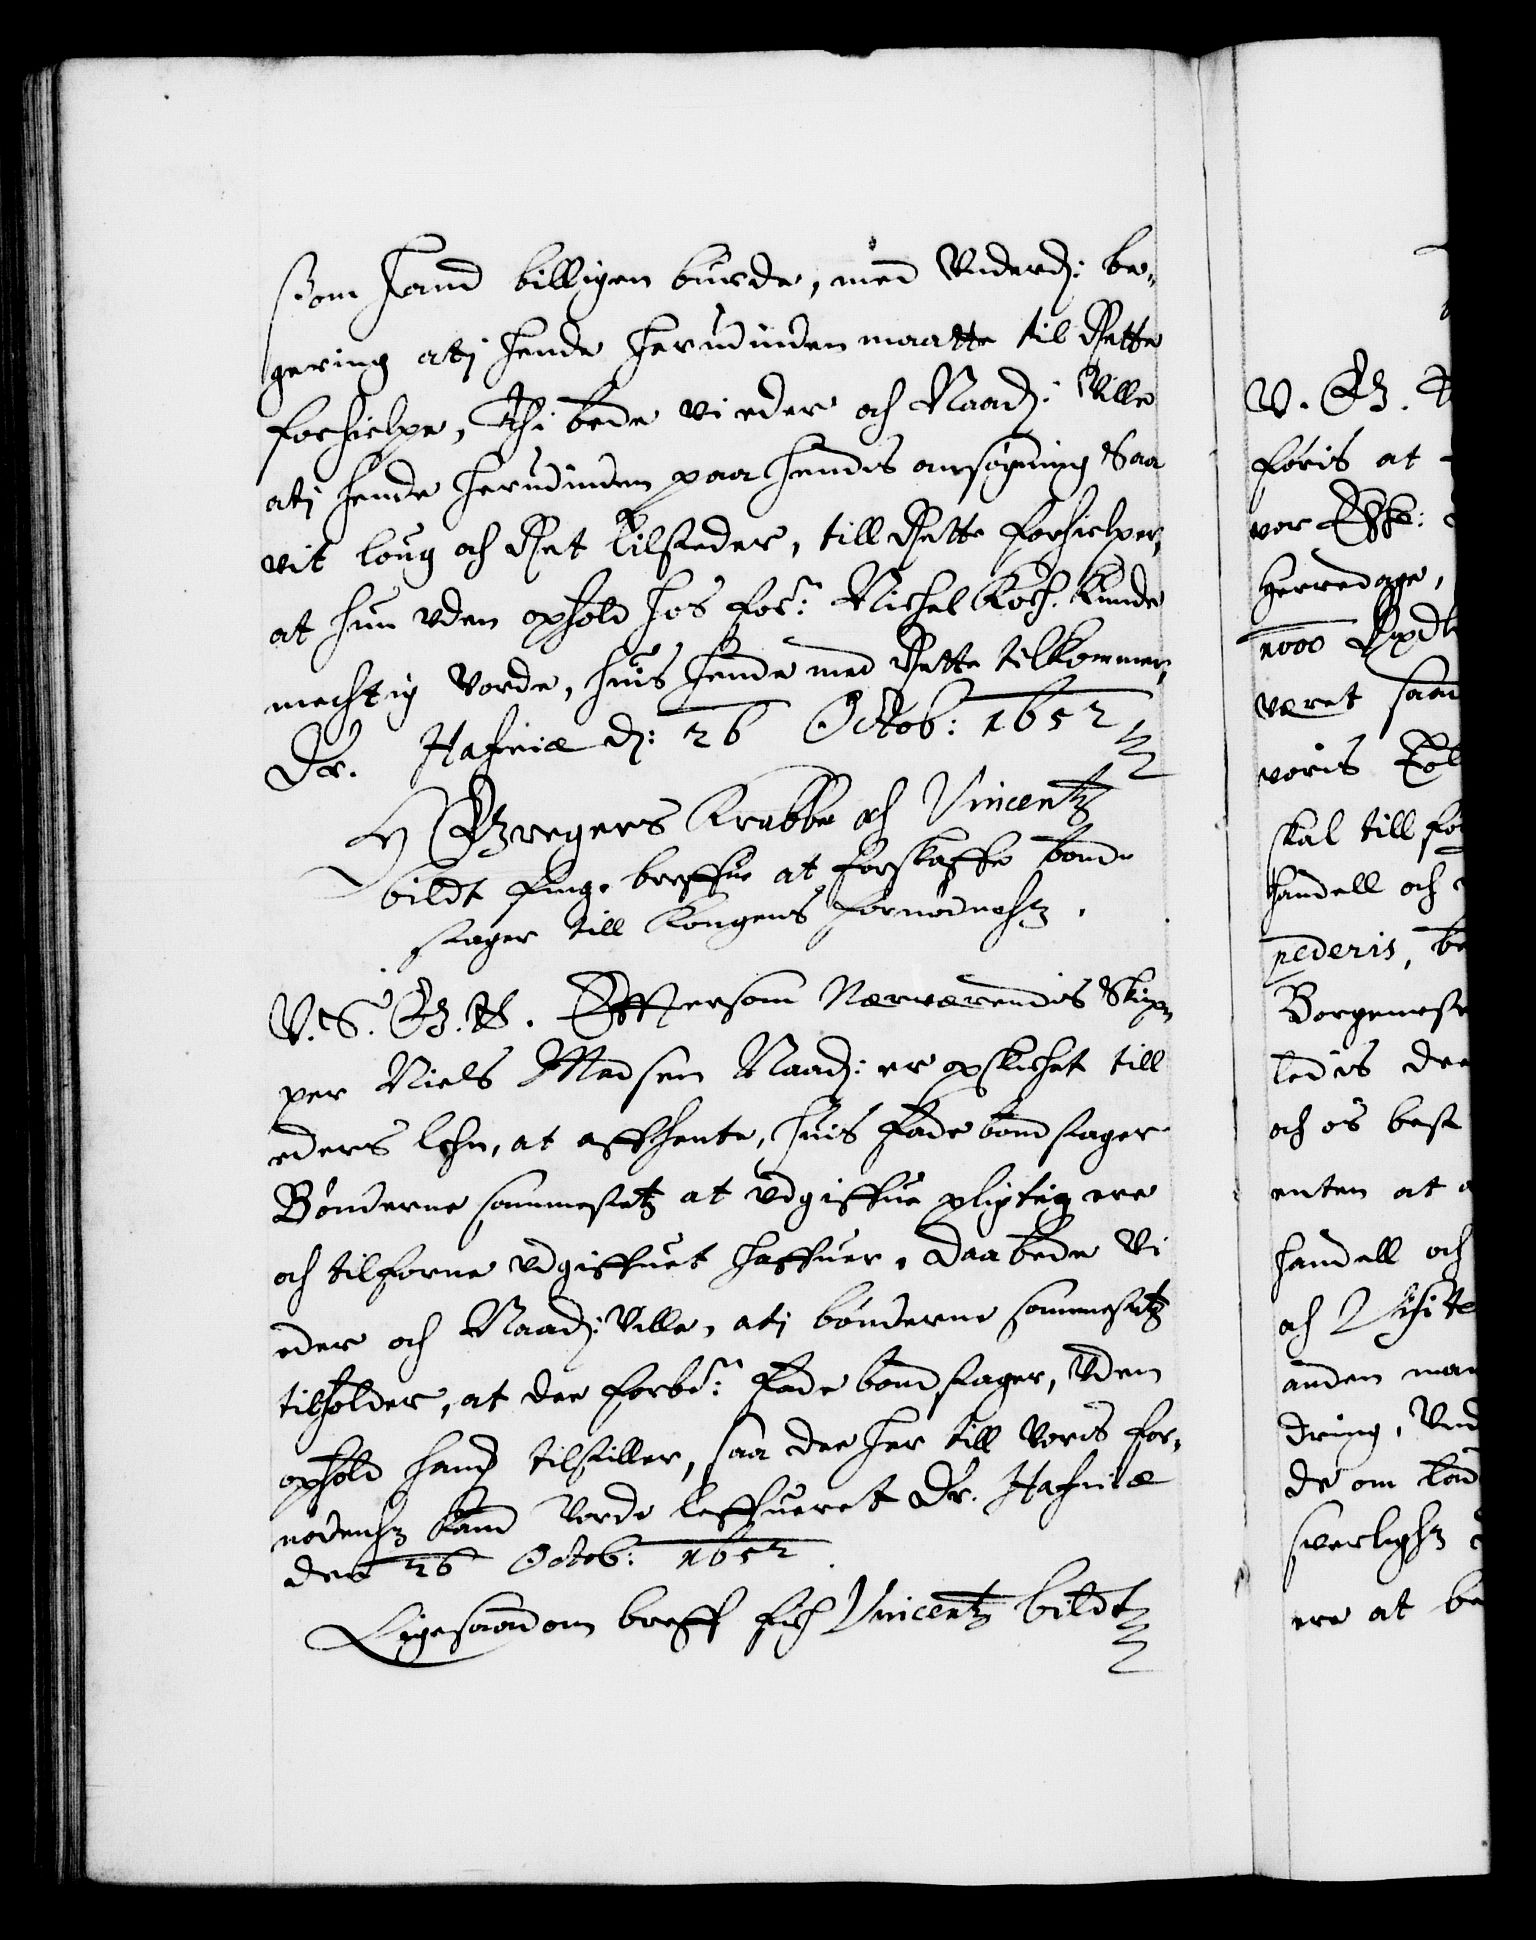 som hand billigen burde, med Underd: be-
gering ati hende herudinden maatte til Rette
forhielpe, Thi bede vi eder och Naad: Ville
ati hende herudinden paa hendis ansøgning Saa
vit loug och Ret tilsteder, till Rette forhielper,
at hun uden ophold hos for: Michel Koch kunde
mechtig vorde, huis hende med Rette tilkommer,
Dr. Hafniæ d: 26 Octob: 1652
H Gregers Krabbe och Vincentz
bildt finge breffue at forskaffe bond
stager till Kongens fornødenhz.
V. S. G. T. Effersom Nærværendis Skip-
per Niels Madsen Naad: er opskichet till
eders lehn, at affhente, huis Fade bond stager
Bønderne sammestetz at udgiffue pligtig ere
och tilforne udgiffuet haffuer, daa bede Vi
eder och Naad: Ville, ati bønderne sammestetz
tilholder, at dee forbe: Fade bond stager, Uden
ophold hand tilstiller, saa dee her till Voris for-
nødenhz kand Vorde leffueret Dr. Hafniæ
den 26 Octob: 1652
Ligesaadan breff fich Vincentz bildt
V. G. T
føris at
vor
Herredage,
1000 Rixdl
været saa
voris
skal till fø
handell och
pederis, be
Borgemest
ledis dee
och os best
enten at
handell och
och Visite
anden man
dring, Und
de om
sverligh
ere at be